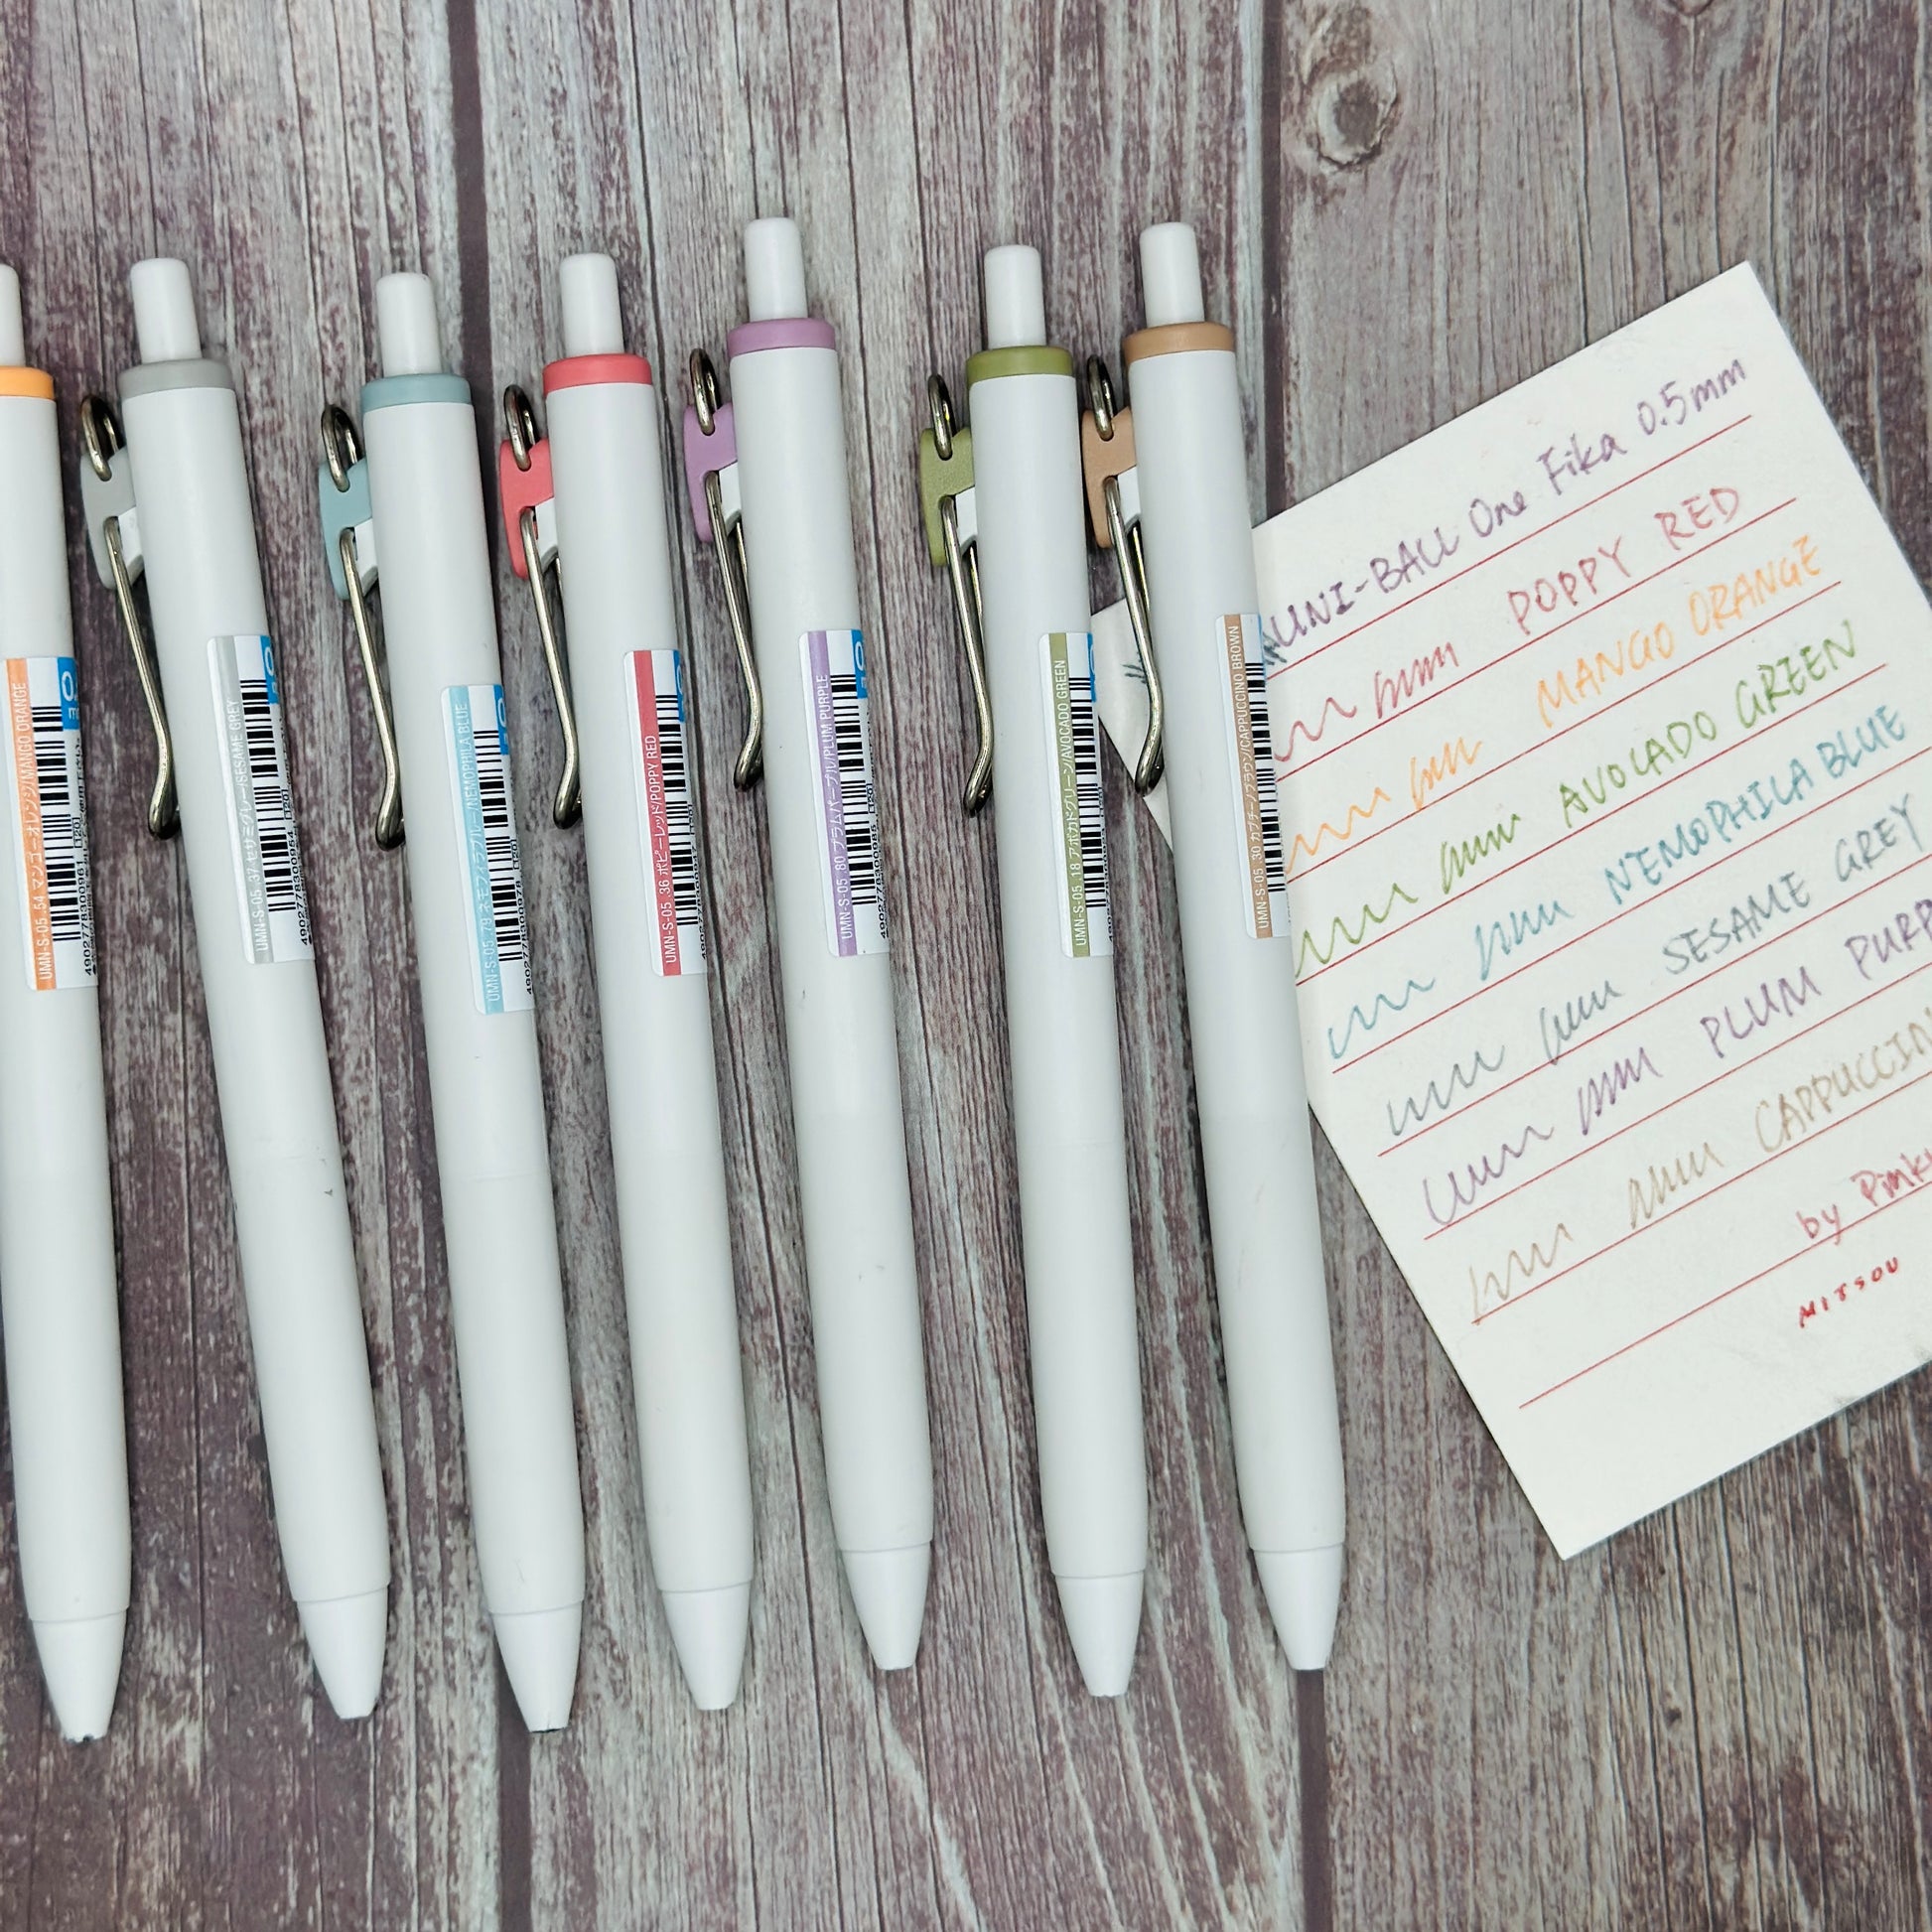 UMN-S-05 .54 マンゴーオレンジ/MANGO ORANGE
4902778300961 [120]
UMN-S-05 .37 セサミグレー/SESAME GREY
4902778300954 [120]
UMN-S-05 .79 ネモフィラブルー/NEMOPHILA BLUE
4902778300978 [120]
UMN-S-05 .36 ポピーレッド/POPPY RED
UMN-S-05 .80 プラムパープル/PLUM PURPLE
4902778300985 [120]
UMN-S-05 .18 アボカドグリーン/AVOCADO GREEN
UMN-S-05 .30 カプチーノブラウン/CAPPUCCINO BROWN
UNI-BALL One Fika 0.5mm
POPPY RED
MANGO ORANGE
AVOCADO GREEN
NEMOPHILA BLUE
SESAME GREY
PLUM PURP
CAPPUCCIN
by Pinky
MITSOU